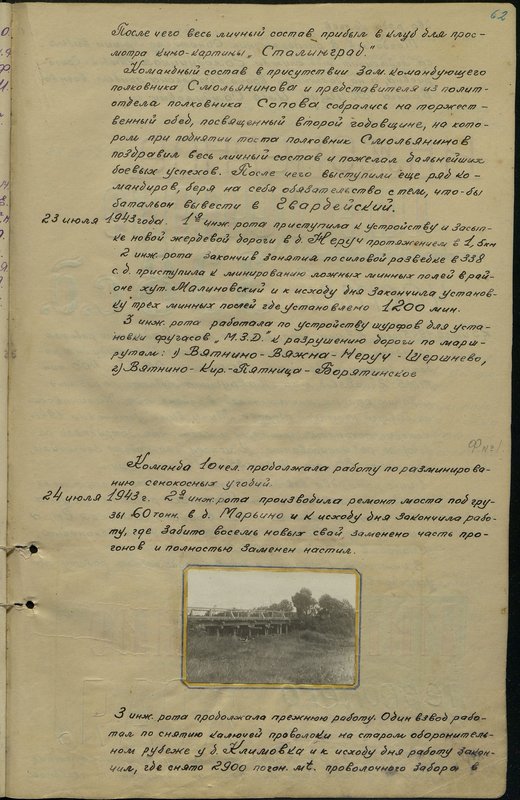 62
После чего весь личный состав прибыл в клуб для прос-
мотра кино-картины „Сталинград."
Командный состав в присутствии Зам. командующего
полковника Смольянинова и представителя из полит-
отдела полковника Сопова собрались на торжест-
венный обед, посвященный второй годовщине, на кото-
ром при поднятии тоста полковник Смольянинов
поздравил весь личный состав и пожелал дальнейших
боевых успехов. После чего выступили еще ряд ко-
мандиров, беря на себя обязательство с тем, что-бы
батальон вывести в Гвардейский.
23 июля 1943 года. 1я инж. рота приступила к устройству и засып-
ке новой жердевой дороги в д. Неруч протяжением в 1,5 км
2 инж. рота закончив занятия по силовой розведке в 338
с.д. приступила к минированию ложных минных полей в рай-
оне хут. Малиновский и к исходу дня закончила установ-
ку трех минных полей где установлено 1200 мин.
3 инж. рота работала по устройству шурфов для уста-
новки фугасов „М.З.Д." к разрушению дороги по марш-
рутам: 1) Вятчино-Вяжна-Неруч-Шершнево,
2) Вятчино-Кир.-Пятница-Борятинское
Ф №1
Команда 10 чел. продолжала работу по разминирова-
нию сенокосных угодий.
24 июля 1943 г. 2я инж. рота производила ремонт моста под гру-
зы 60 тонн. в д. Марьино и к исходу дня закончила рабо-
ту, где забито восемь новых свай, заменено часть про-
гонов и полностью заменен настил.
3 инж. рота продолжала прежнюю работу. Один взвод рабо-
тал по снятию колючей проволоки на старом оборонитель-
ном рубеже у д. Климовка и к исходу дня работу закон-
чил, где снято 2900 погон. мt. проволочного забора в